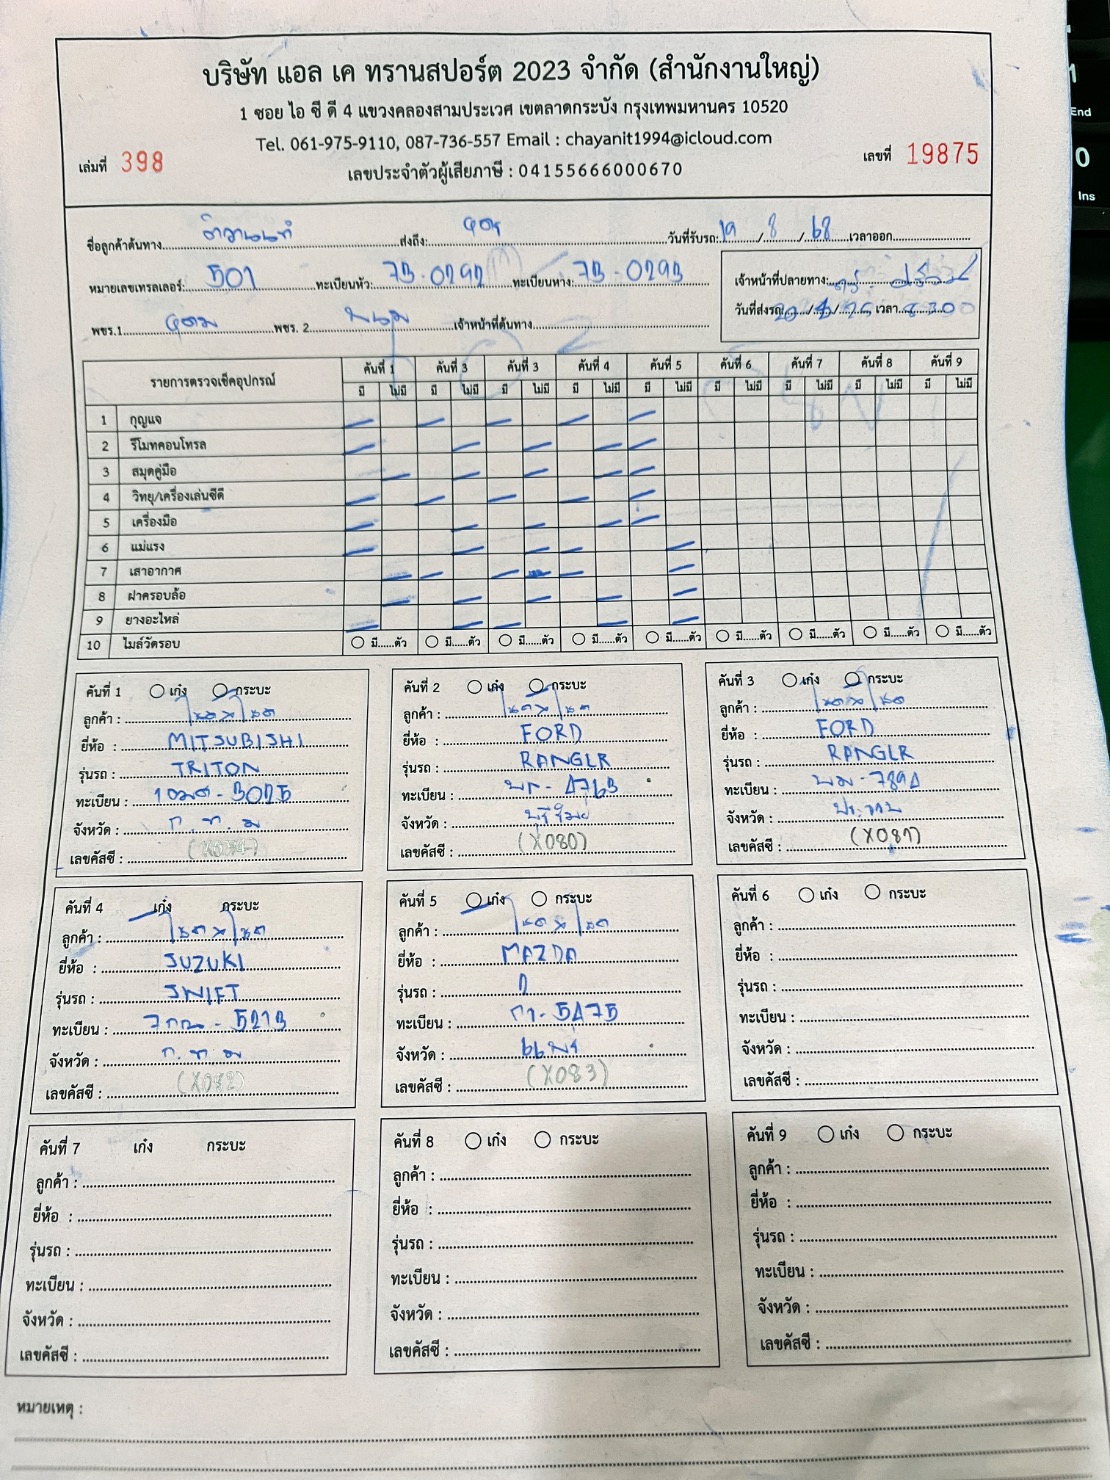 บริษัท แอล เค ทรานสปอร์ต 2023 จำกัด (สำนักงานใหญ่)
1 ซอย ไอ ซี ดี 4 แขวงคลองสามประเวศ เขตลาดกระบัง กรุงเทพมหานคร 10520
Tel. 061-975-9110, 087-736-557 Email : chayanit1994@icloud.com
เลขประจำตัวผู้เสียภาษี : 04155666000670
เล่มที่ 398 เลขที่ 19875
ชื่อลูกค้าต้นทาง ติวานนท์ ส่งถึง: อุดร วันที่รับรถ 19 / 8 / 68 เวลาออก
หมายเลขเทรลเลอร์: 501 ทะเบียนหัว: 73-0292 ทะเบียนหาง: 73-0293
เจ้าหน้าที่ปลายทาง:
พขร.1 อุดม พขร. 2 เจ้าหน้าที่ต้นทาง
วันที่ส่งรถ เวลา
รายการตรวจเช็คอุปกรณ์ คันที่ 1 คันที่ 3 คันที่ 3 คันที่ 4 คันที่ 5 คันที่ 6 คันที่ 7 คันที่ 8 คันที่ 9
มี ไม่มี มี ไม่มี มี ไม่มี มี ไม่มี มี ไม่มี มี ไม่มี มี ไม่มี มี ไม่มี มี ไม่มี
1 กุญแจ
2 รีโมทคอนโทรล
3 สมุดคู่มือ
4 วิทยุ/เครื่องเล่นซีดี
5 เครื่องมือ
6 แม่แรง
7 เสาอากาศ
8 ฝาครอบล้อ
9 ยางอะไหล่
10 ไมล์วัดรอบ มี......ตัว มี......ตัว มี......ตัว มี......ตัว มี......ตัว มี......ตัว มี......ตัว มี......ตัว มี......ตัว
คันที่ 1 เก๋ง กระบะ
ลูกค้า :
ยี่ห้อ : MITSUBISHI
รุ่นรถ : TRITON
ทะเบียน :
จังหวัด : ก.ท.ม
เลขคัสซี :
คันที่ 2 เก๋ง กระบะ
ลูกค้า :
ยี่ห้อ : FORD
รุ่นรถ : RANGLR
ทะเบียน :
จังหวัด : บุรีรัมย์
เลขคัสซี : (X080)
คันที่ 3 เก๋ง กระบะ
ลูกค้า :
ยี่ห้อ : FORD
รุ่นรถ : RANGLR
ทะเบียน :
จังหวัด :
เลขคัสซี : (X081)
คันที่ 4 เก๋ง กระบะ
ลูกค้า :
ยี่ห้อ : SUZUKI
รุ่นรถ : SWIFT
ทะเบียน :
จังหวัด : ก.ท.ม
เลขคัสซี : (X082)
คันที่ 5 เก๋ง กระบะ
ลูกค้า :
ยี่ห้อ : MAZDA
รุ่นรถ : 2
ทะเบียน :
จังหวัด : แพร่
เลขคัสซี : (X083)
คันที่ 6 เก๋ง กระบะ
ลูกค้า :
ยี่ห้อ :
รุ่นรถ :
ทะเบียน :
จังหวัด :
เลขคัสซี :
คันที่ 7 เก๋ง กระบะ
ลูกค้า :
ยี่ห้อ :
รุ่นรถ :
ทะเบียน :
จังหวัด :
เลขคัสซี :
คันที่ 8 เก๋ง กระบะ
ลูกค้า :
ยี่ห้อ :
รุ่นรถ :
ทะเบียน :
จังหวัด :
เลขคัสซี :
คันที่ 9 เก๋ง กระบะ
ลูกค้า :
ยี่ห้อ :
รุ่นรถ :
ทะเบียน :
จังหวัด :
เลขคัสซี :
หมายเหตุ :
1
End
0
Ins